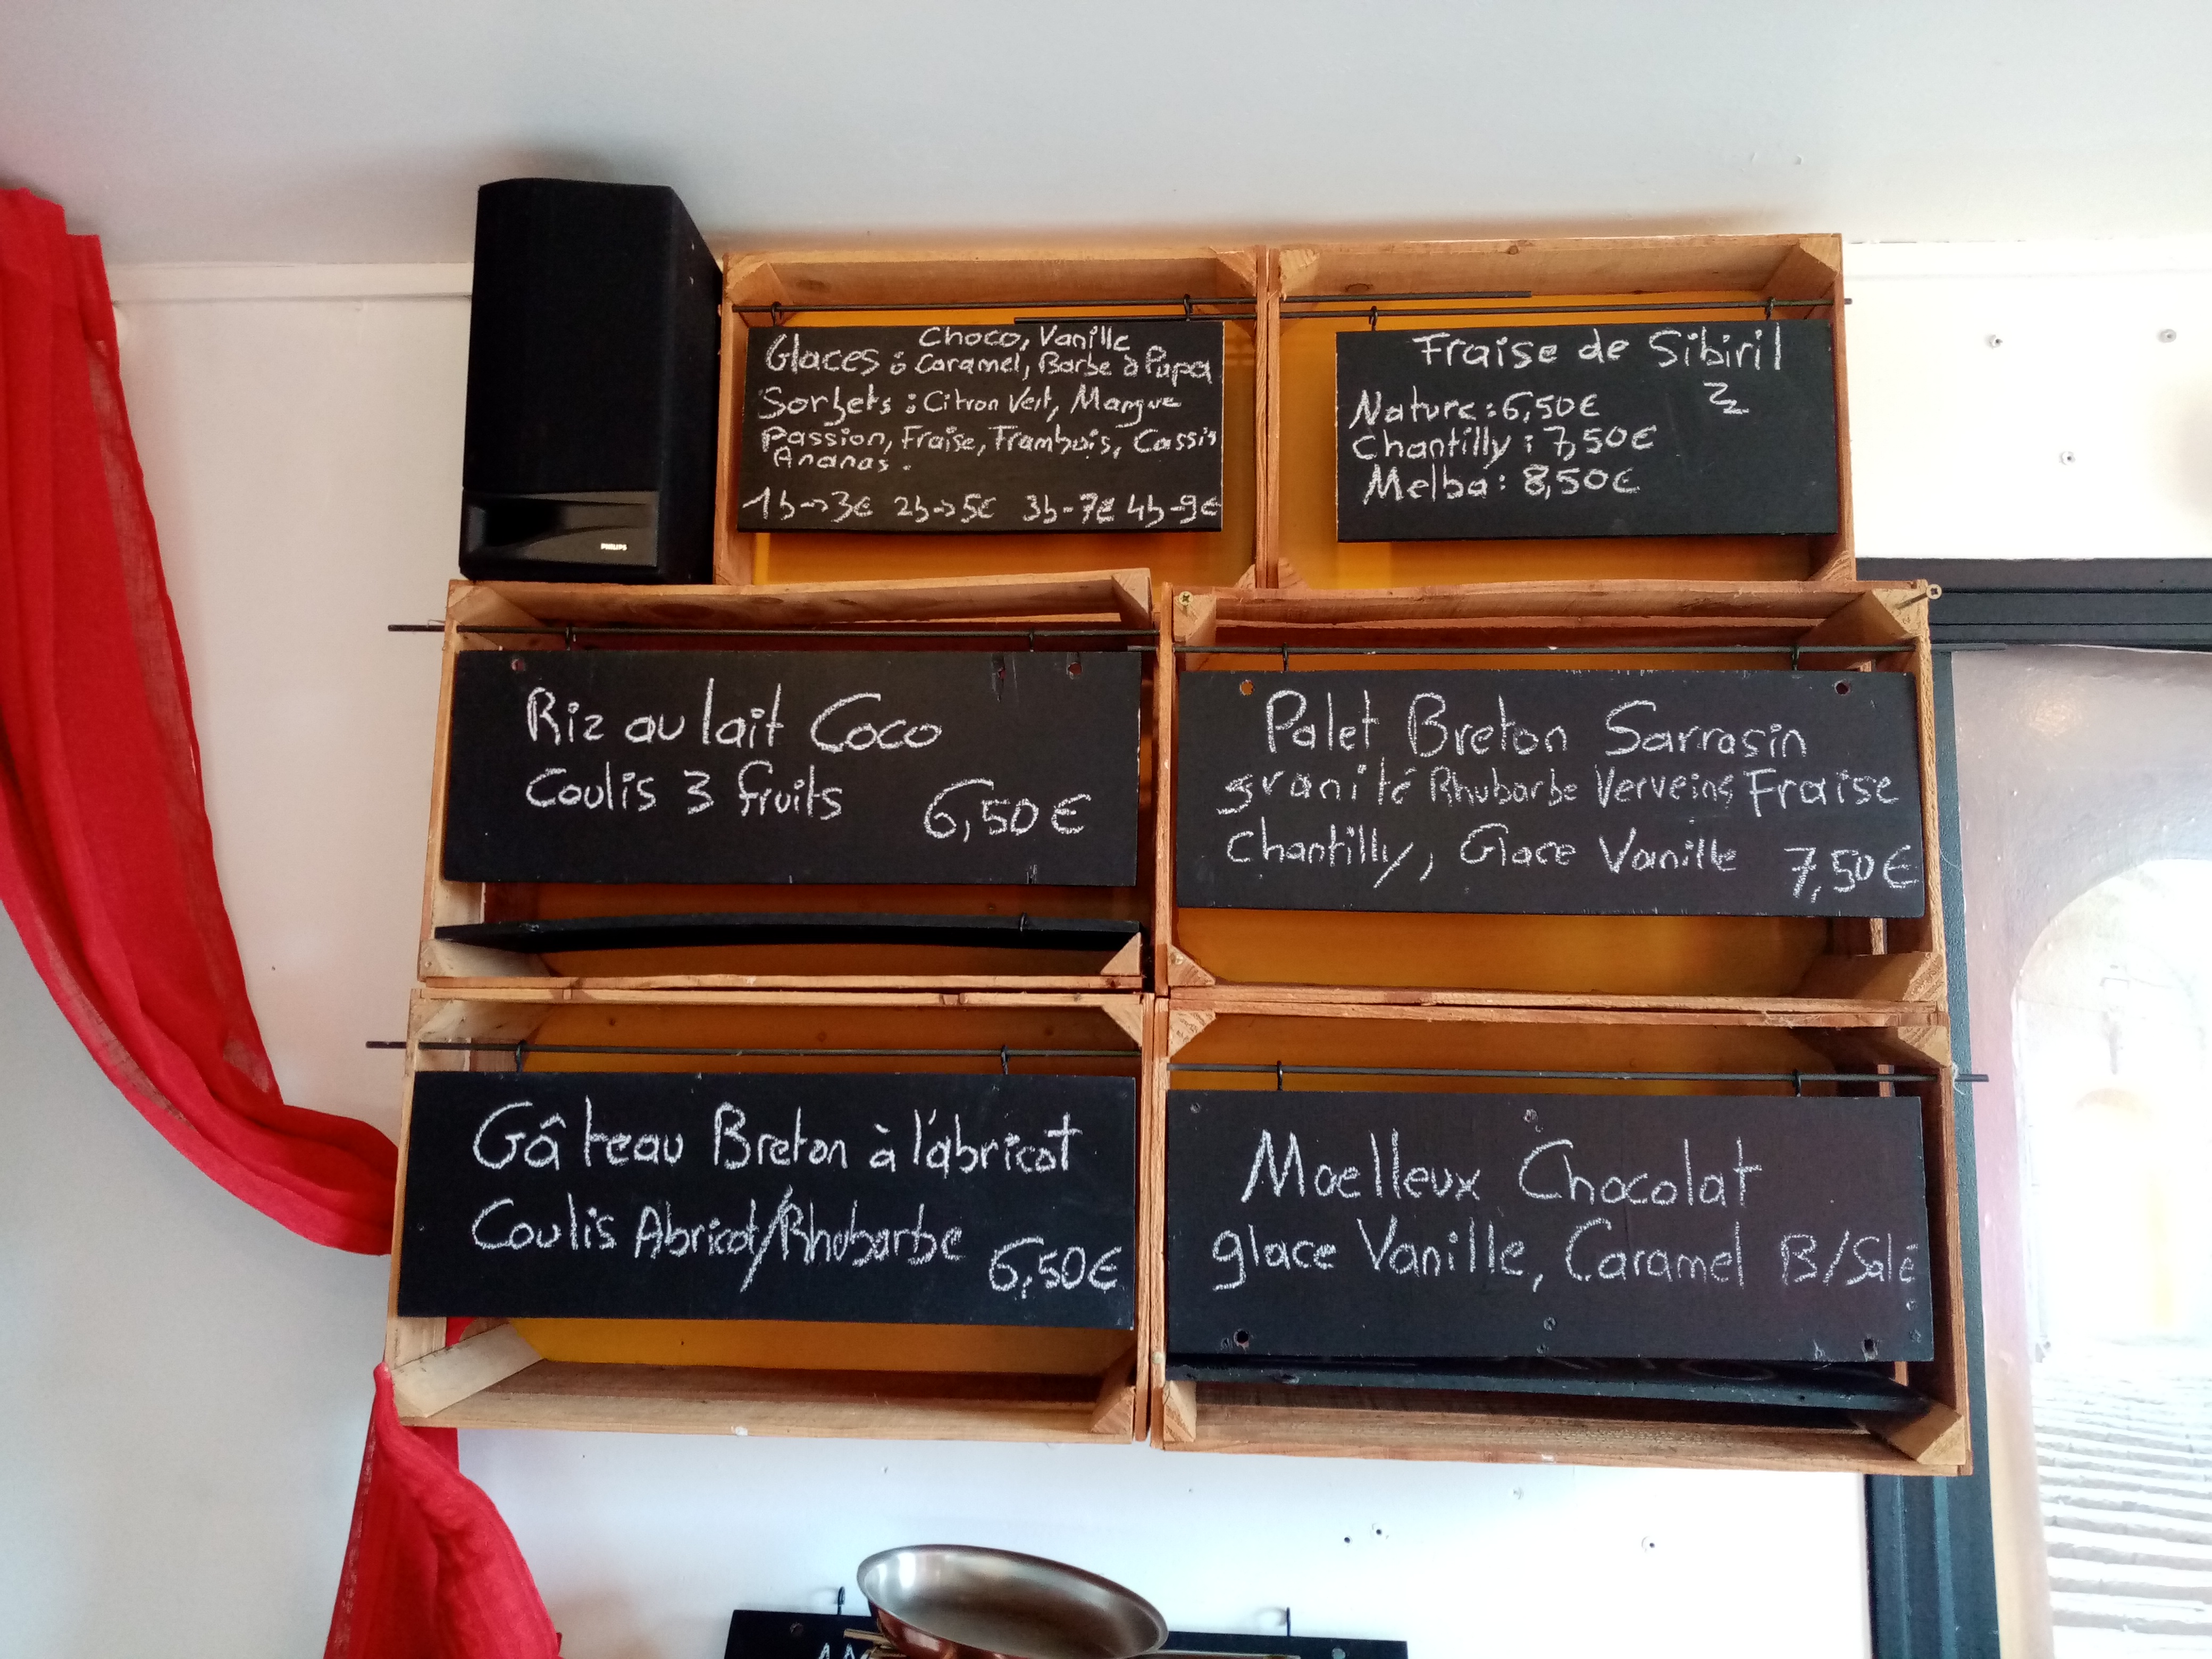 PHILIPS
Choco, Vanille
Glaces : Caramel, Barbe à Papa
Sorbets : Citron Vert, Mangue
Passion, Fraise, Frambois, Cassis
Ananas.
1b→3€ 2b→5€ 3b-7€ 4b-9€
Fraise de Sibiril
Nature : 6,50€
Chantilly : 7,50€
Melba : 8,50€
Riz au lait Coco
Coulis 3 fruits 6,50€
Palet Breton Sarrasin
granité Rhubarbe Verveine Fraise
Chantilly, Glace Vanille 7,50€
Gâteau Breton à l'abricot
Coulis Abricot/Rhubarbe 6,50€
Moelleux Chocolat
glace Vanille, Caramel B/Salé